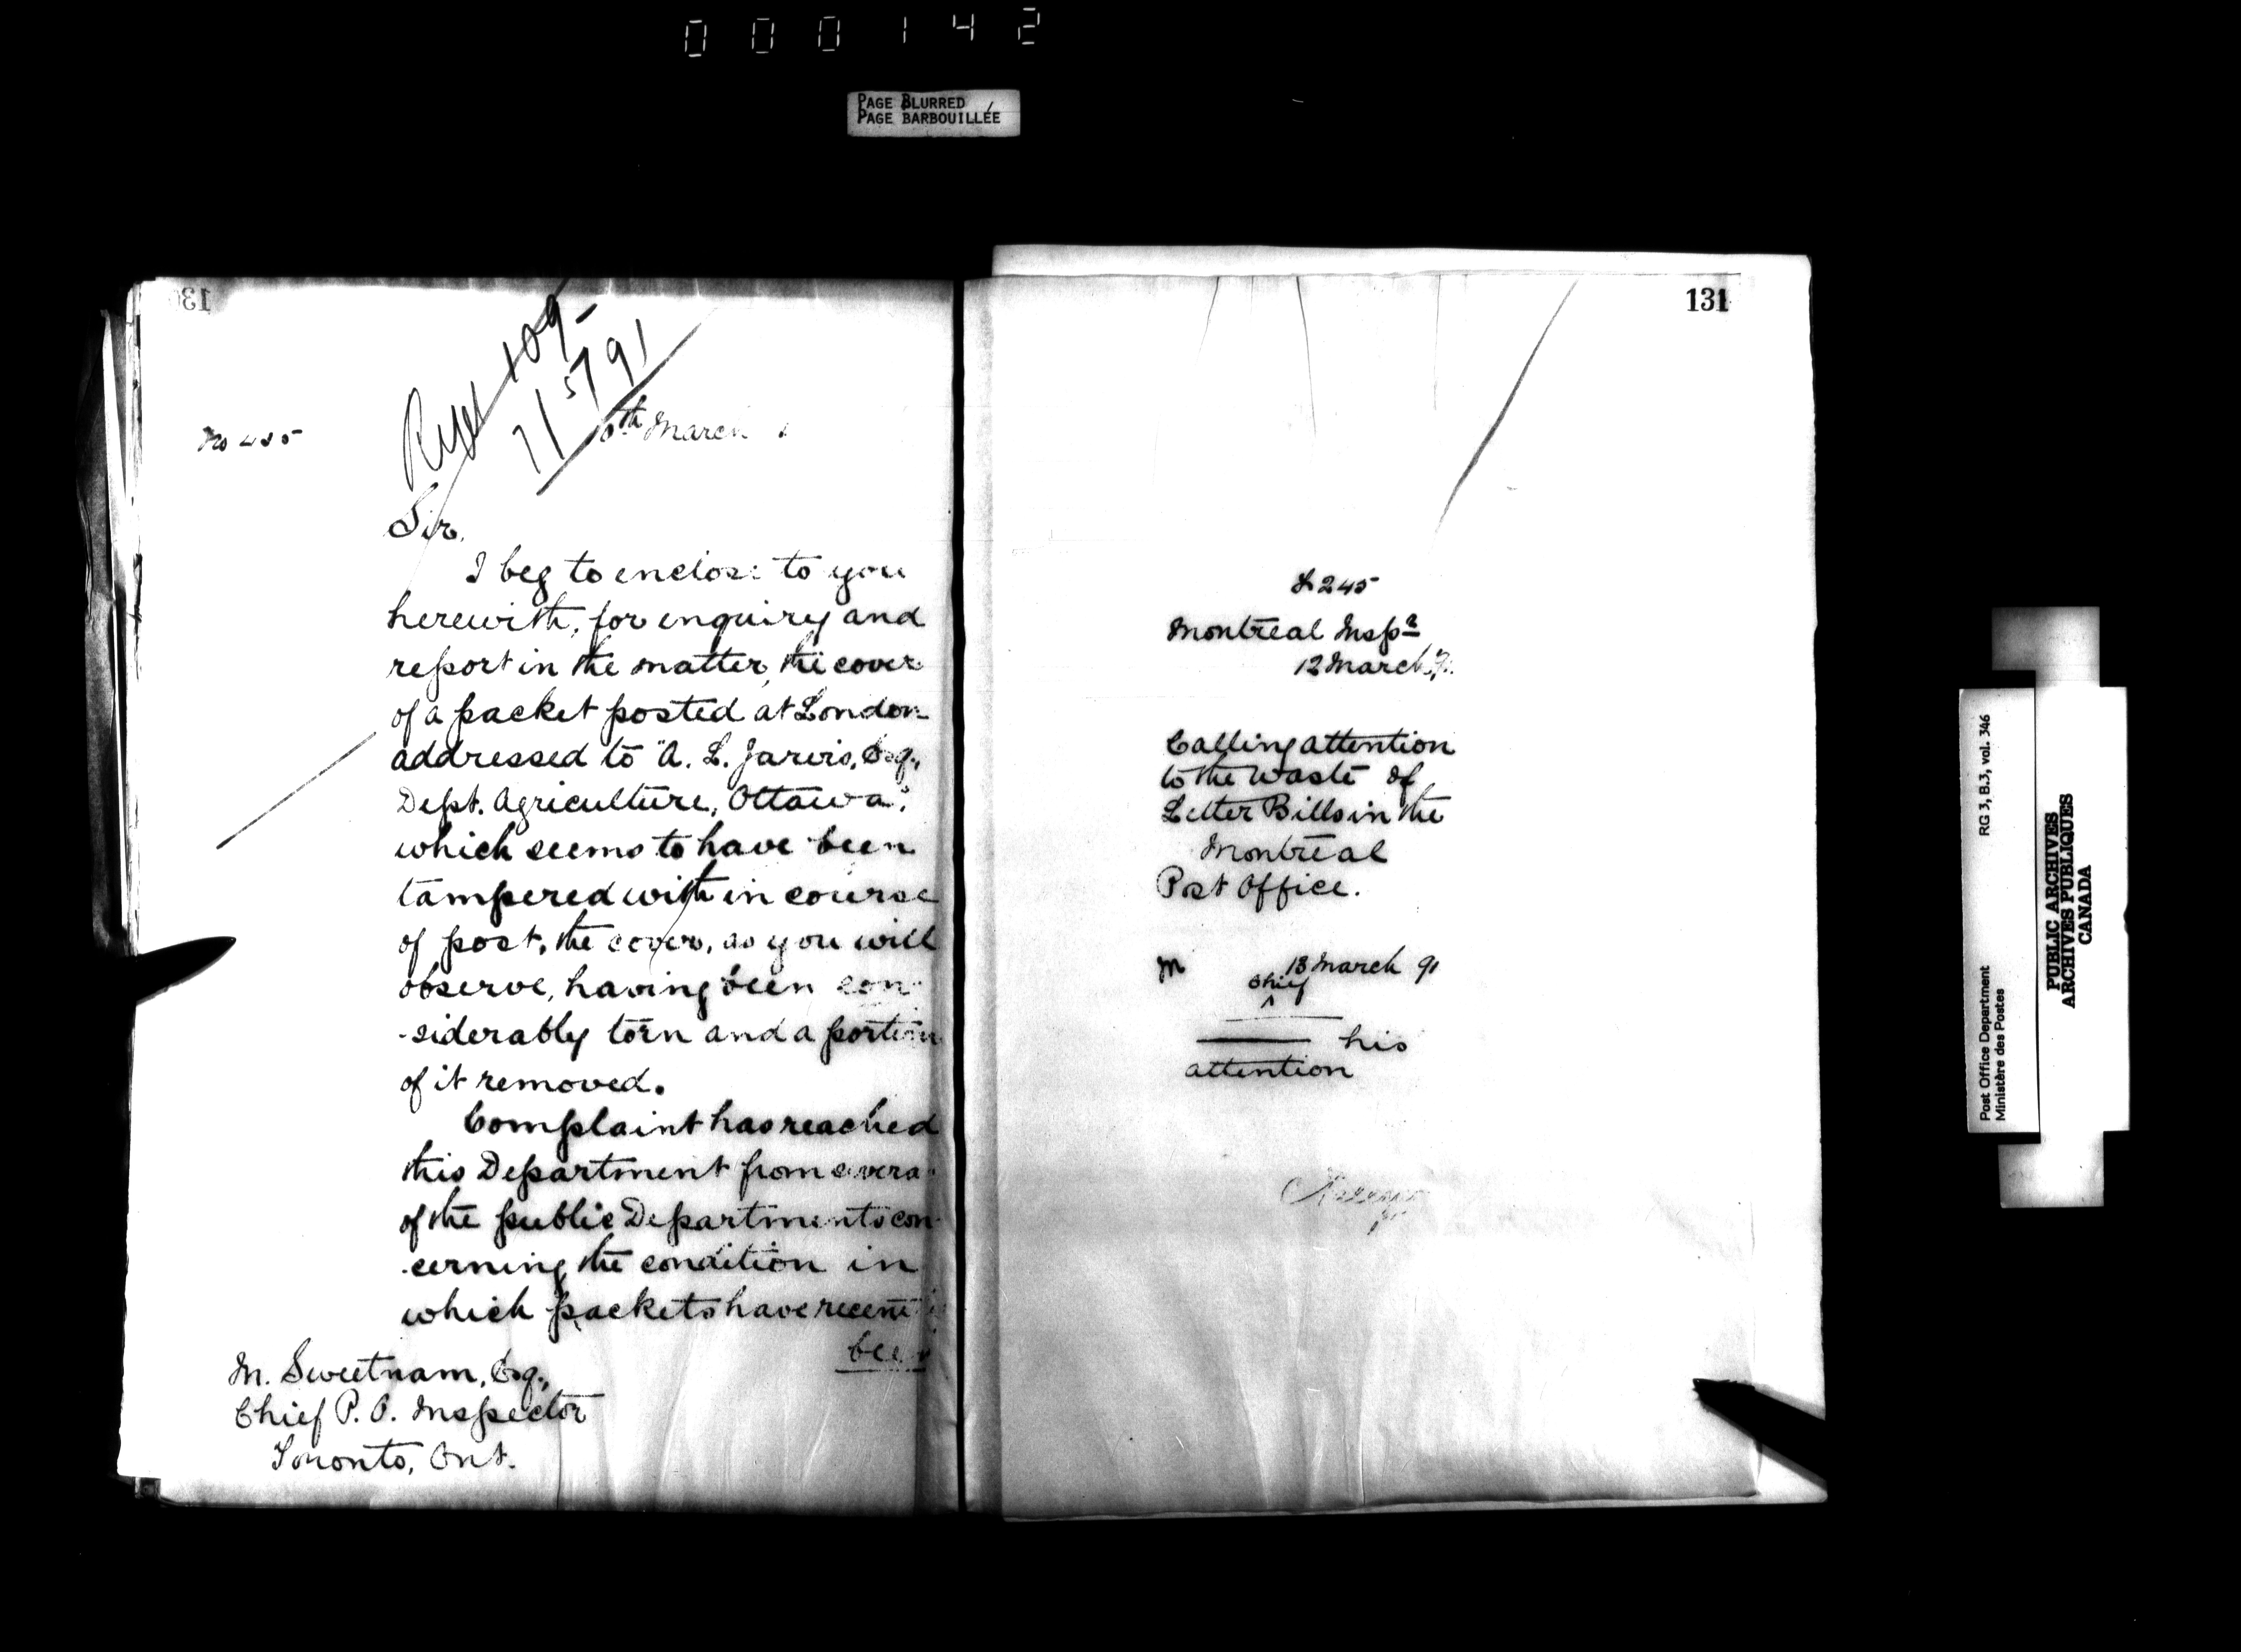 000142
PAGE BLURRED
PAGE BARBOUILLÉE
130
109
91
No 455
th March
Sir,
I beg to enclose to you
herewith, for enquiry and
report in the matter, the cover
of a packet posted at London
addressed to "A. L. Jarvis, Esq.,
Dept. Agriculture, Ottawa",
which seems to have been
tampered with in course
of post, the cover, as you will
observe, having been con-
-siderably torn and a portion
of it removed.
Complaint has reached
this Department from several
of the public Departments con-
-cerning the condition in
which packets have recently
been
M. Sweetnam, Esq.,
Chief P. O. Inspector
Toronto, Ont.
131
L 245
Montreal Inspr
12 March 91.
Calling attention
to the waste of
Letter Bills in the
Montreal
Post Office.
M 13 March 91
Chief
his
attention
RG 3, B.3, vol. 346
Post Office Department
Ministère des Postes
PUBLIC ARCHIVES
ARCHIVES PUBLIQUES
CANADA